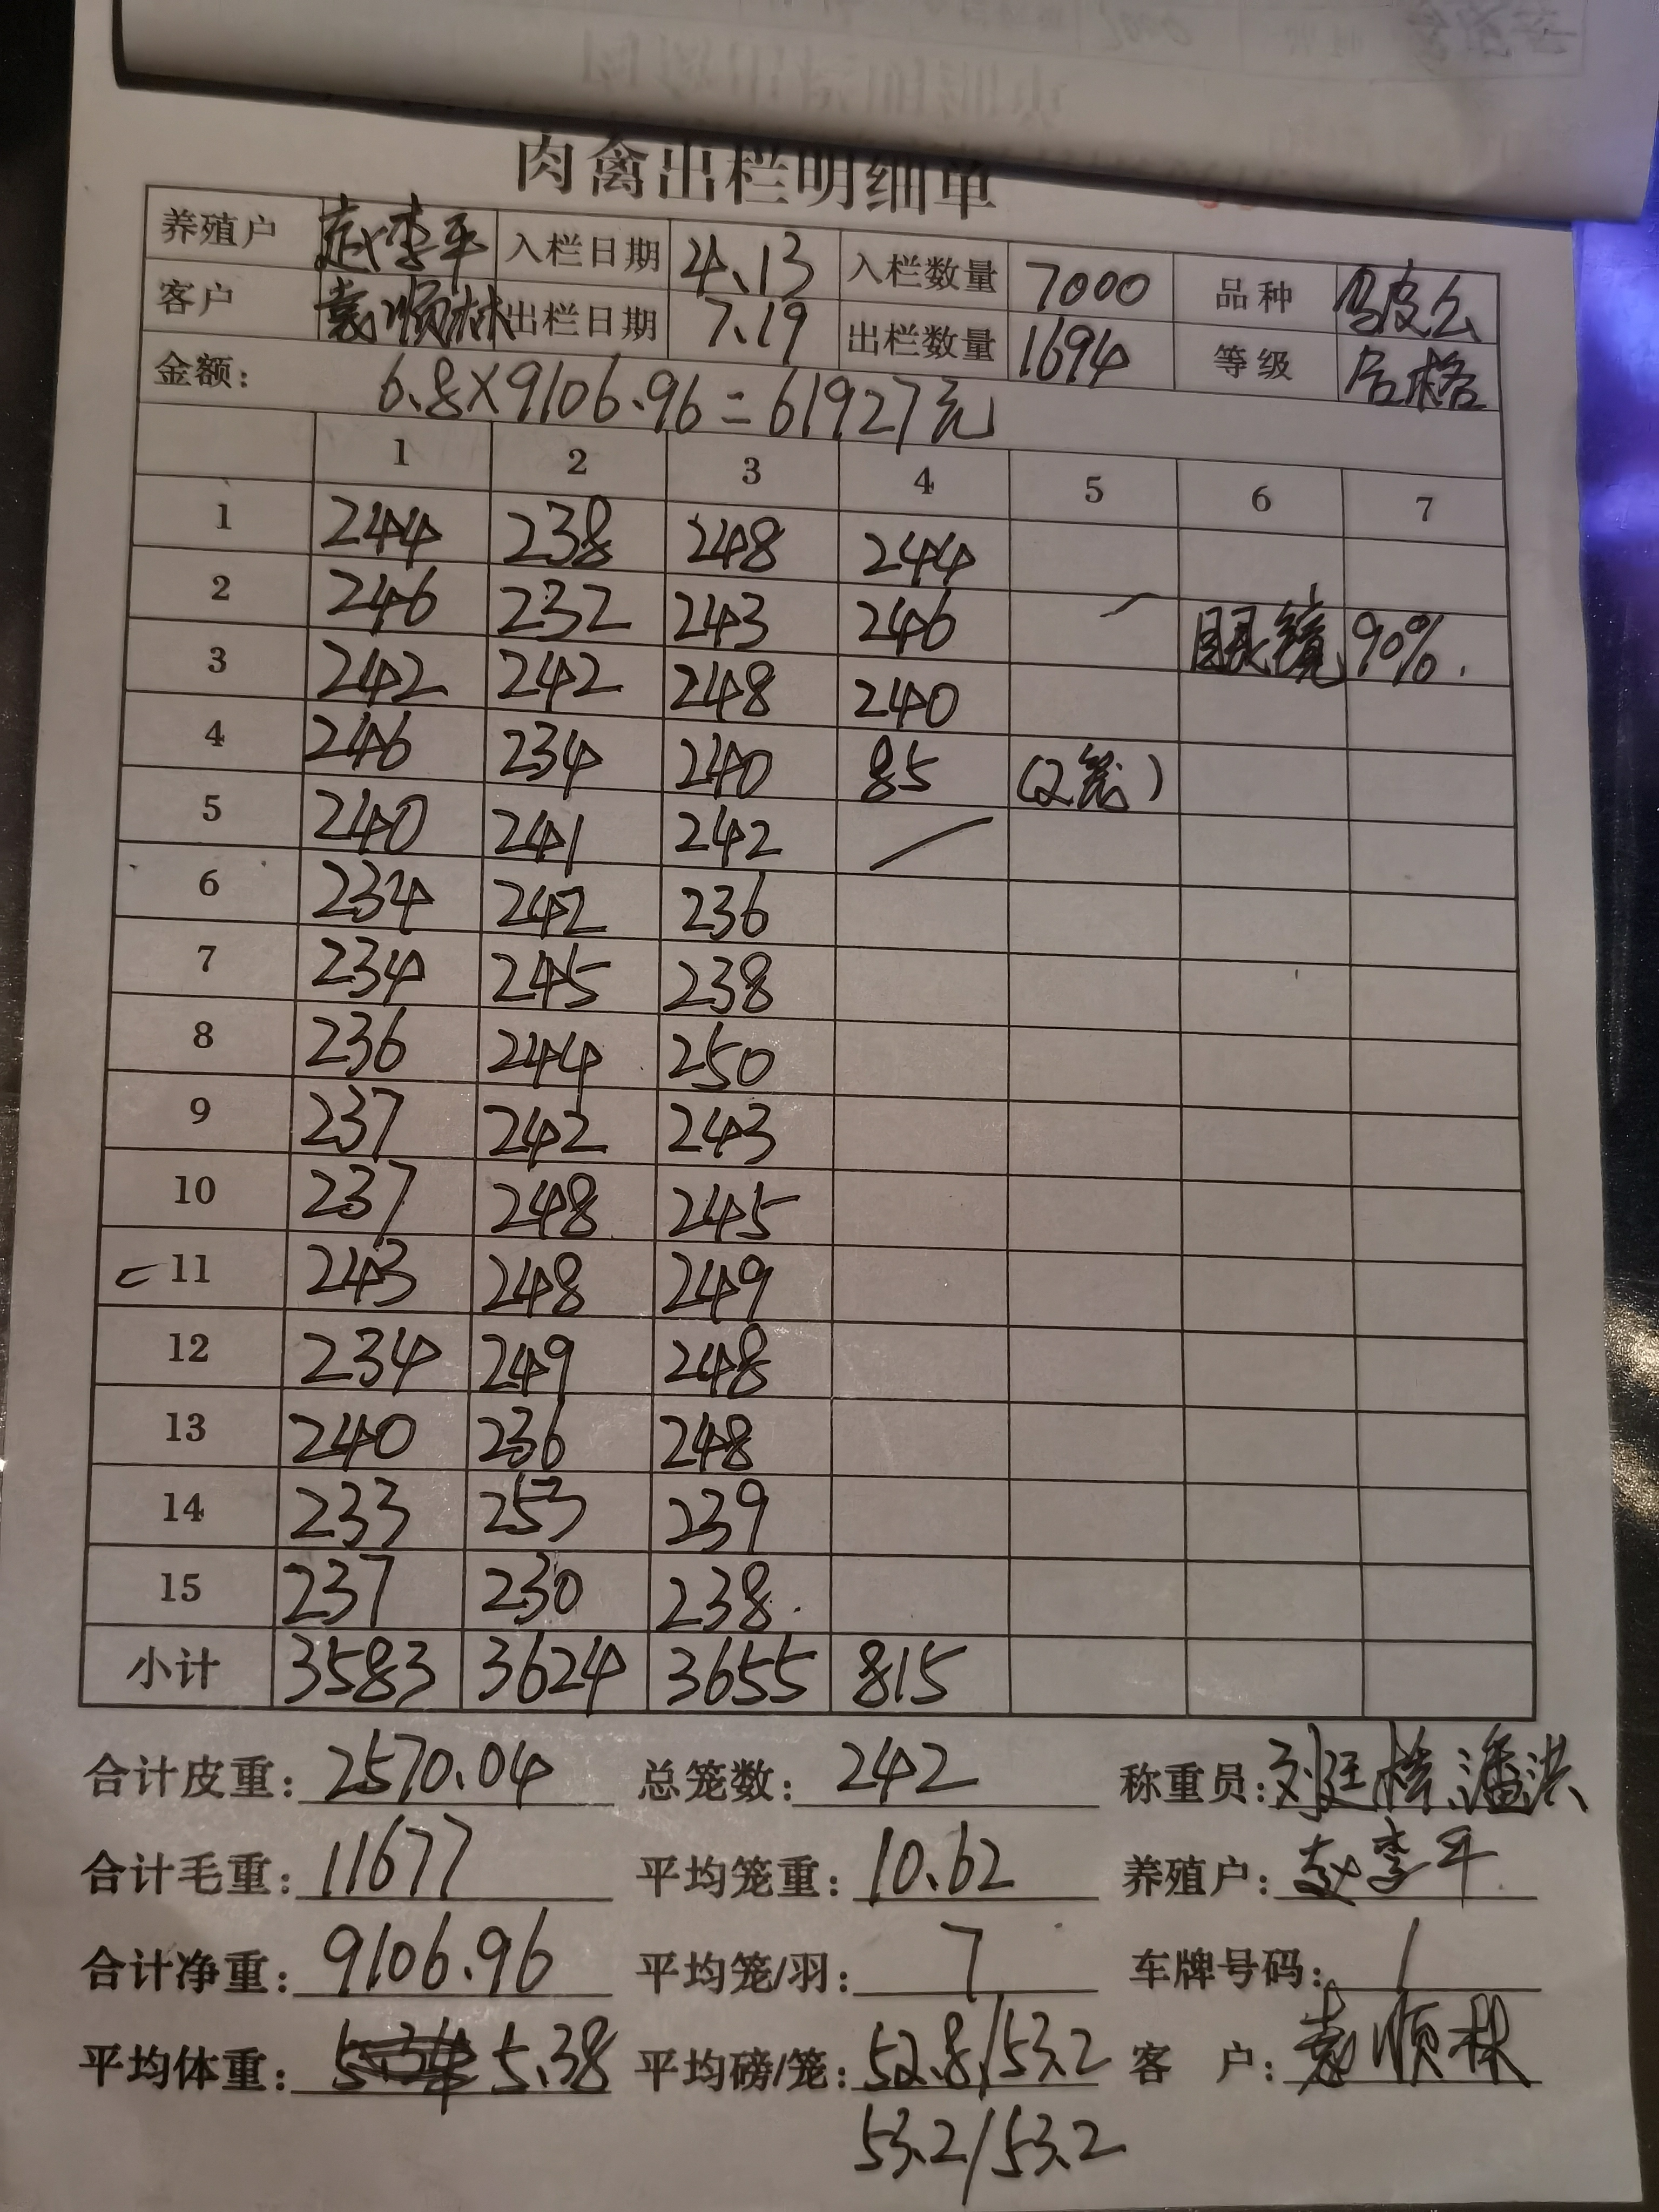 肉禽出栏明细单
养殖户 赵李平 入栏日期 4.13 入栏数量 7000 品种 乌皮公
客户 袁顺林 出栏日期 7.19 出栏数量 1694 等级 合格
金额: 6.8×9106.96=61927元
1 2 3 4 5 6 7
1 244 238 248 244
2 246 232 243 246 眼镜 90%.
3 242 242 248 240
4 246 234 240 85 (2笼)
5 240 241 242 /
6 234 242 236
7 234 245 238
8 236 244 250
9 237 242 243
10 237 248 245
11 243 248 249
12 234 249 248
13 240 236 248
14 233 253 239
15 237 230 238.
小计 3583 3624 3655 815
合计皮重: 2570.04 总笼数: 242 称重员: 潘洪
合计毛重: 11677 平均笼重: 10.62 养殖户: 赵李平
合计净重: 9106.96 平均笼/羽: 7 车牌号码: /
平均体重: 5.38 平均磅/笼: 52.8/53.2 客 户: 袁顺林
53.2/53.2